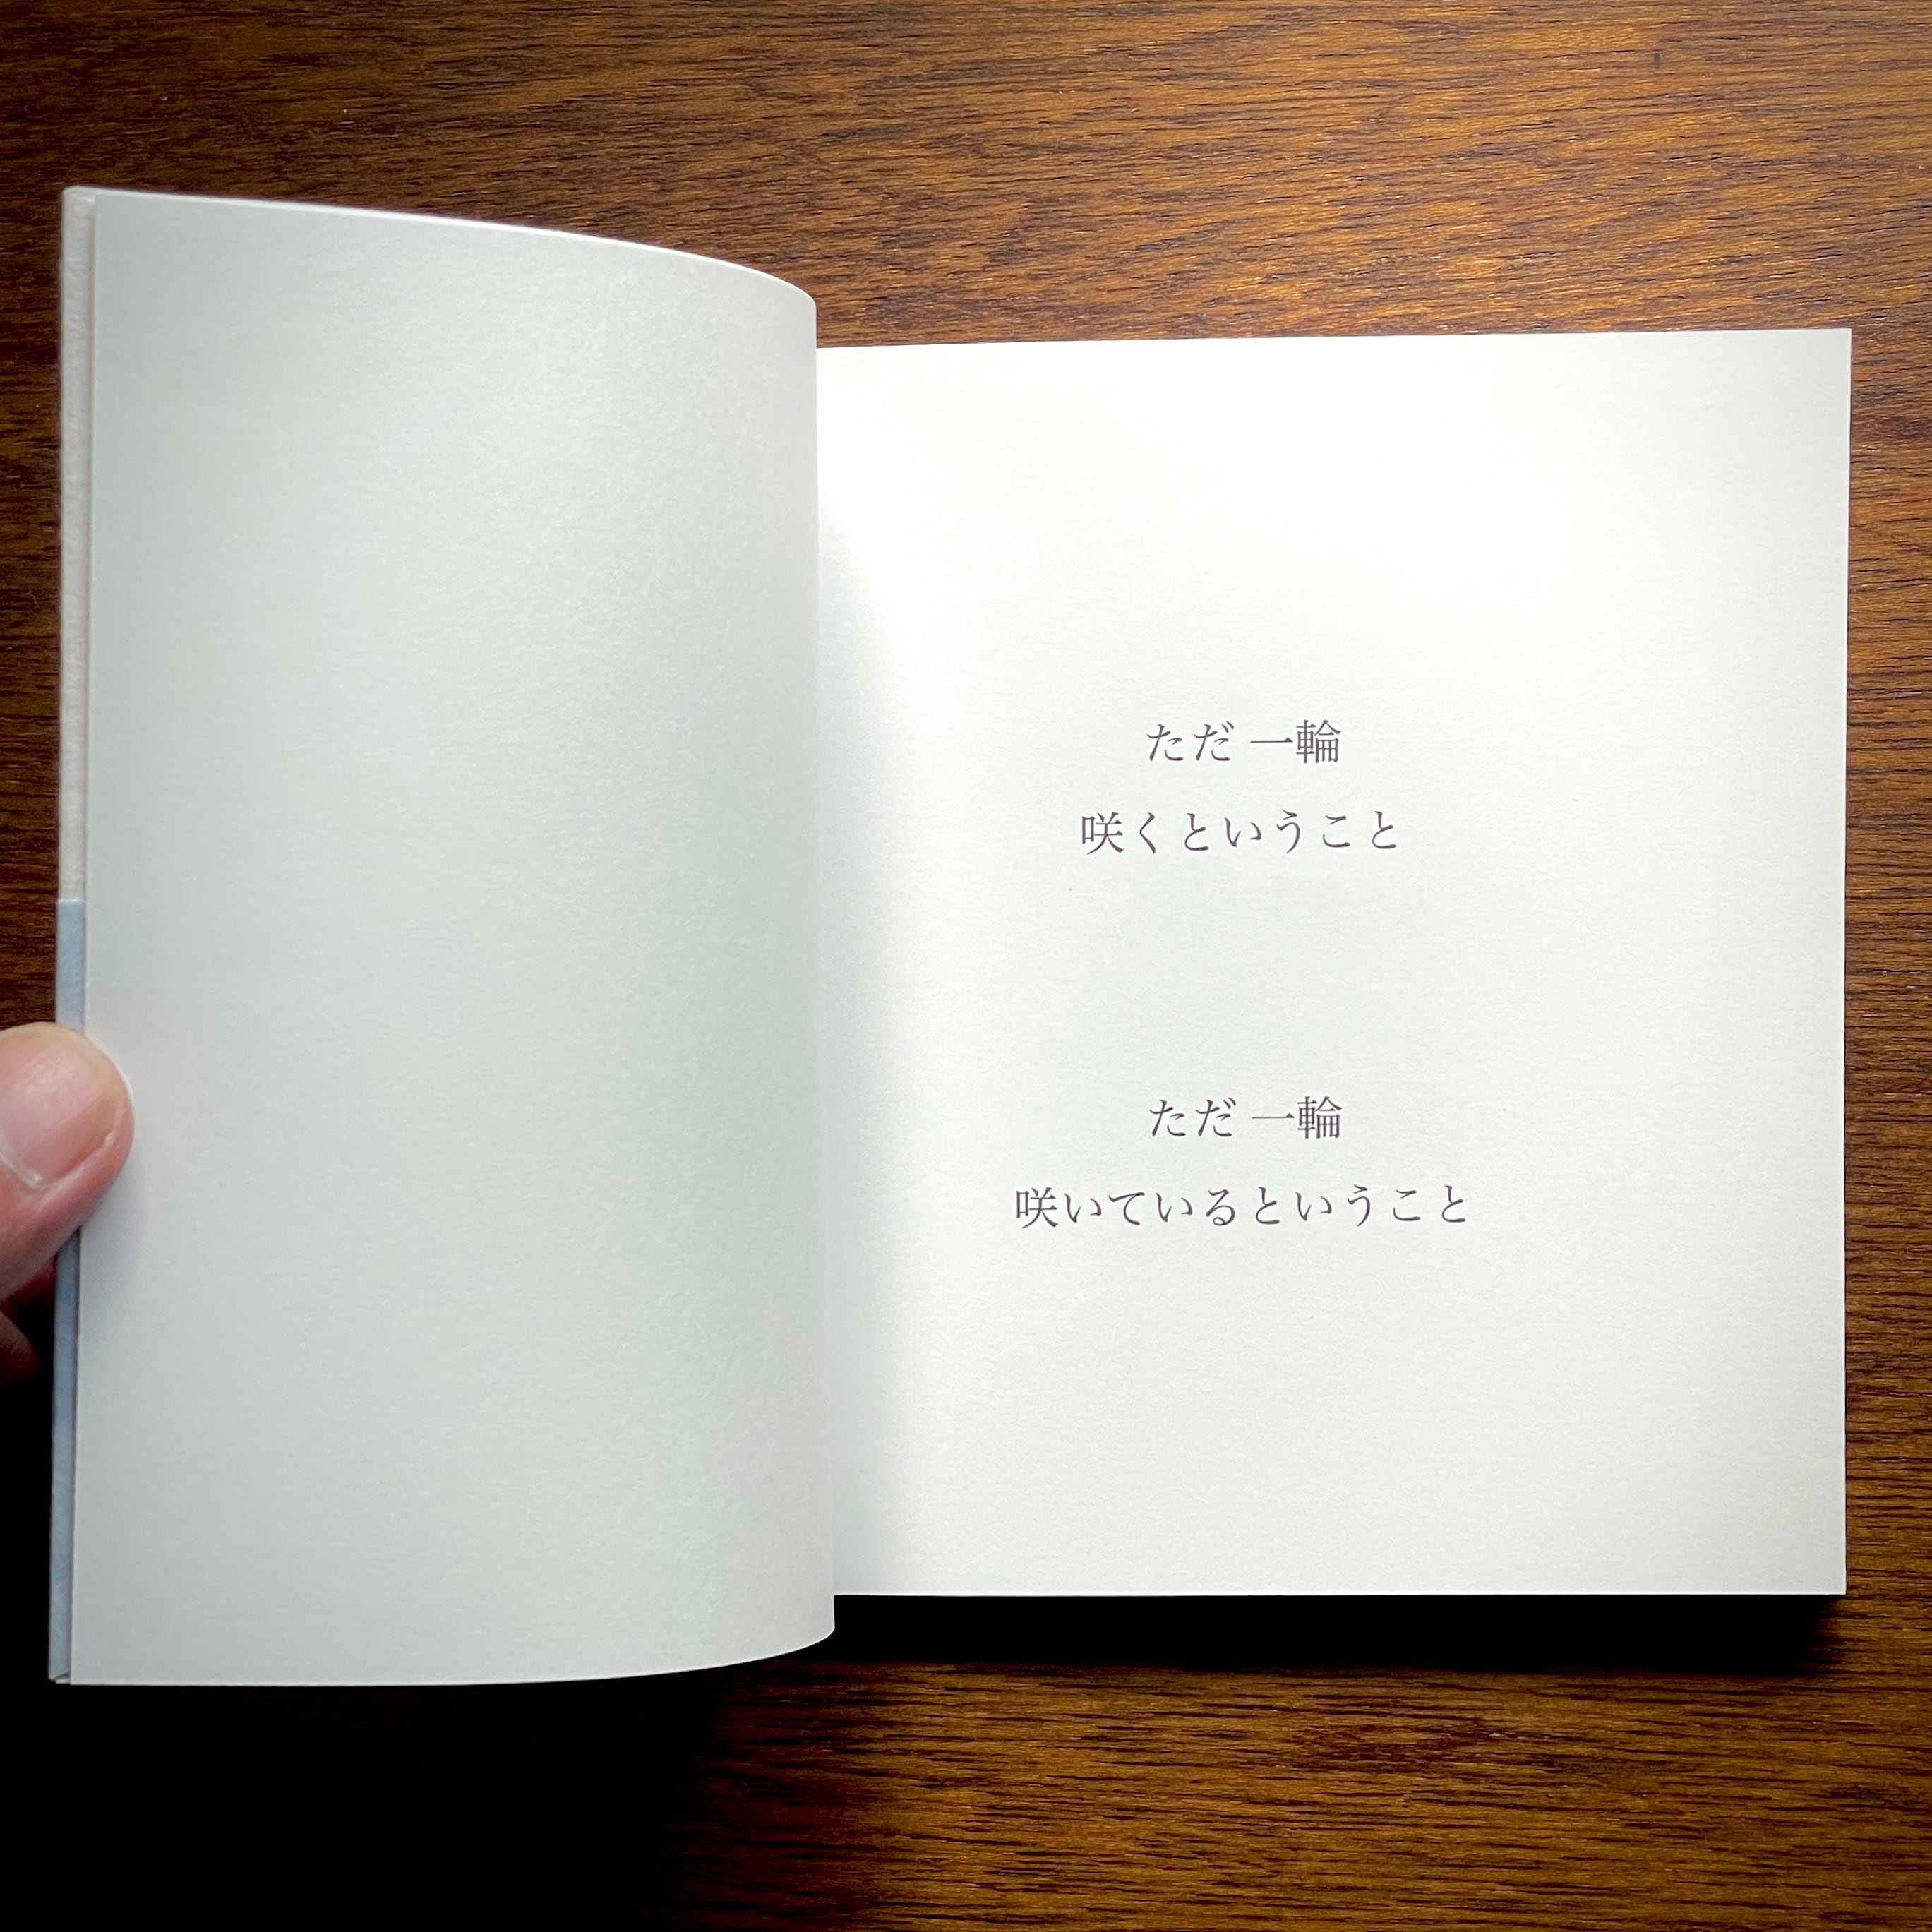 ただ 一輪
咲くということ
ただ 一輪
咲いているということ